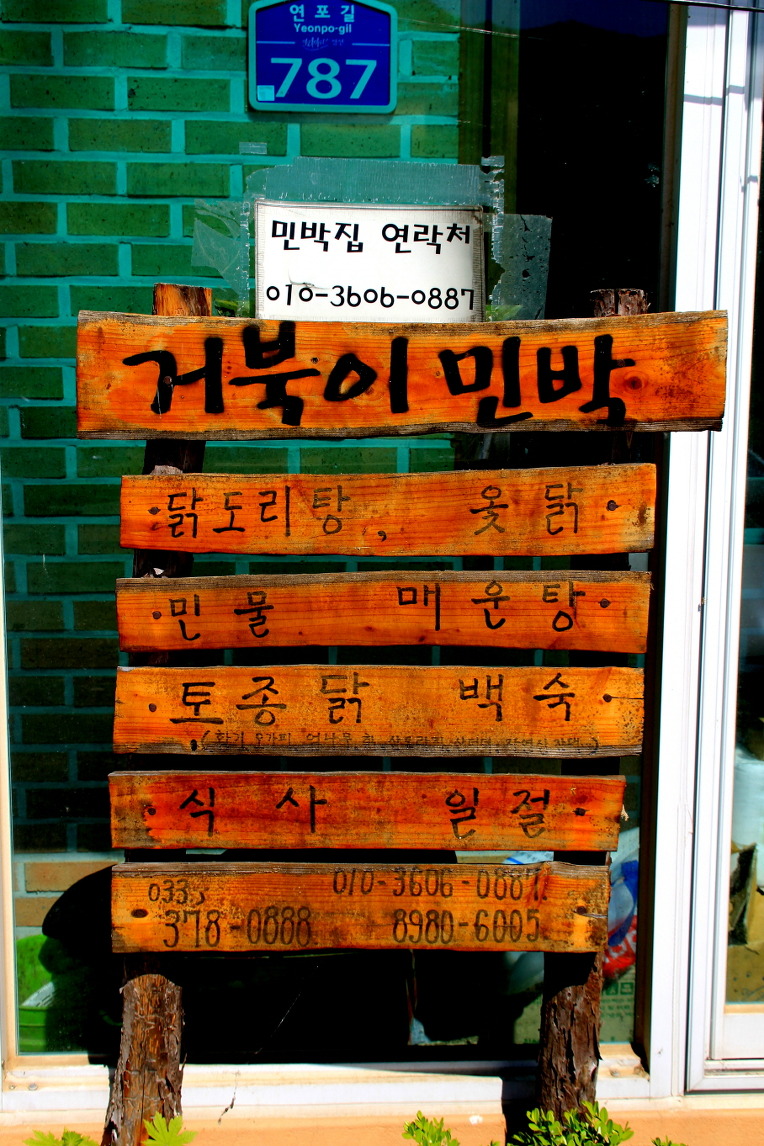 연포길
Yeonpo-gil
787
민박집 연락처
010-3606-0887
거북이 민박
닭도리탕, 옻닭
민물 매운탕
토종닭 백숙
식사 일절
010-3606-0887
033)
378-0888 8980-6005